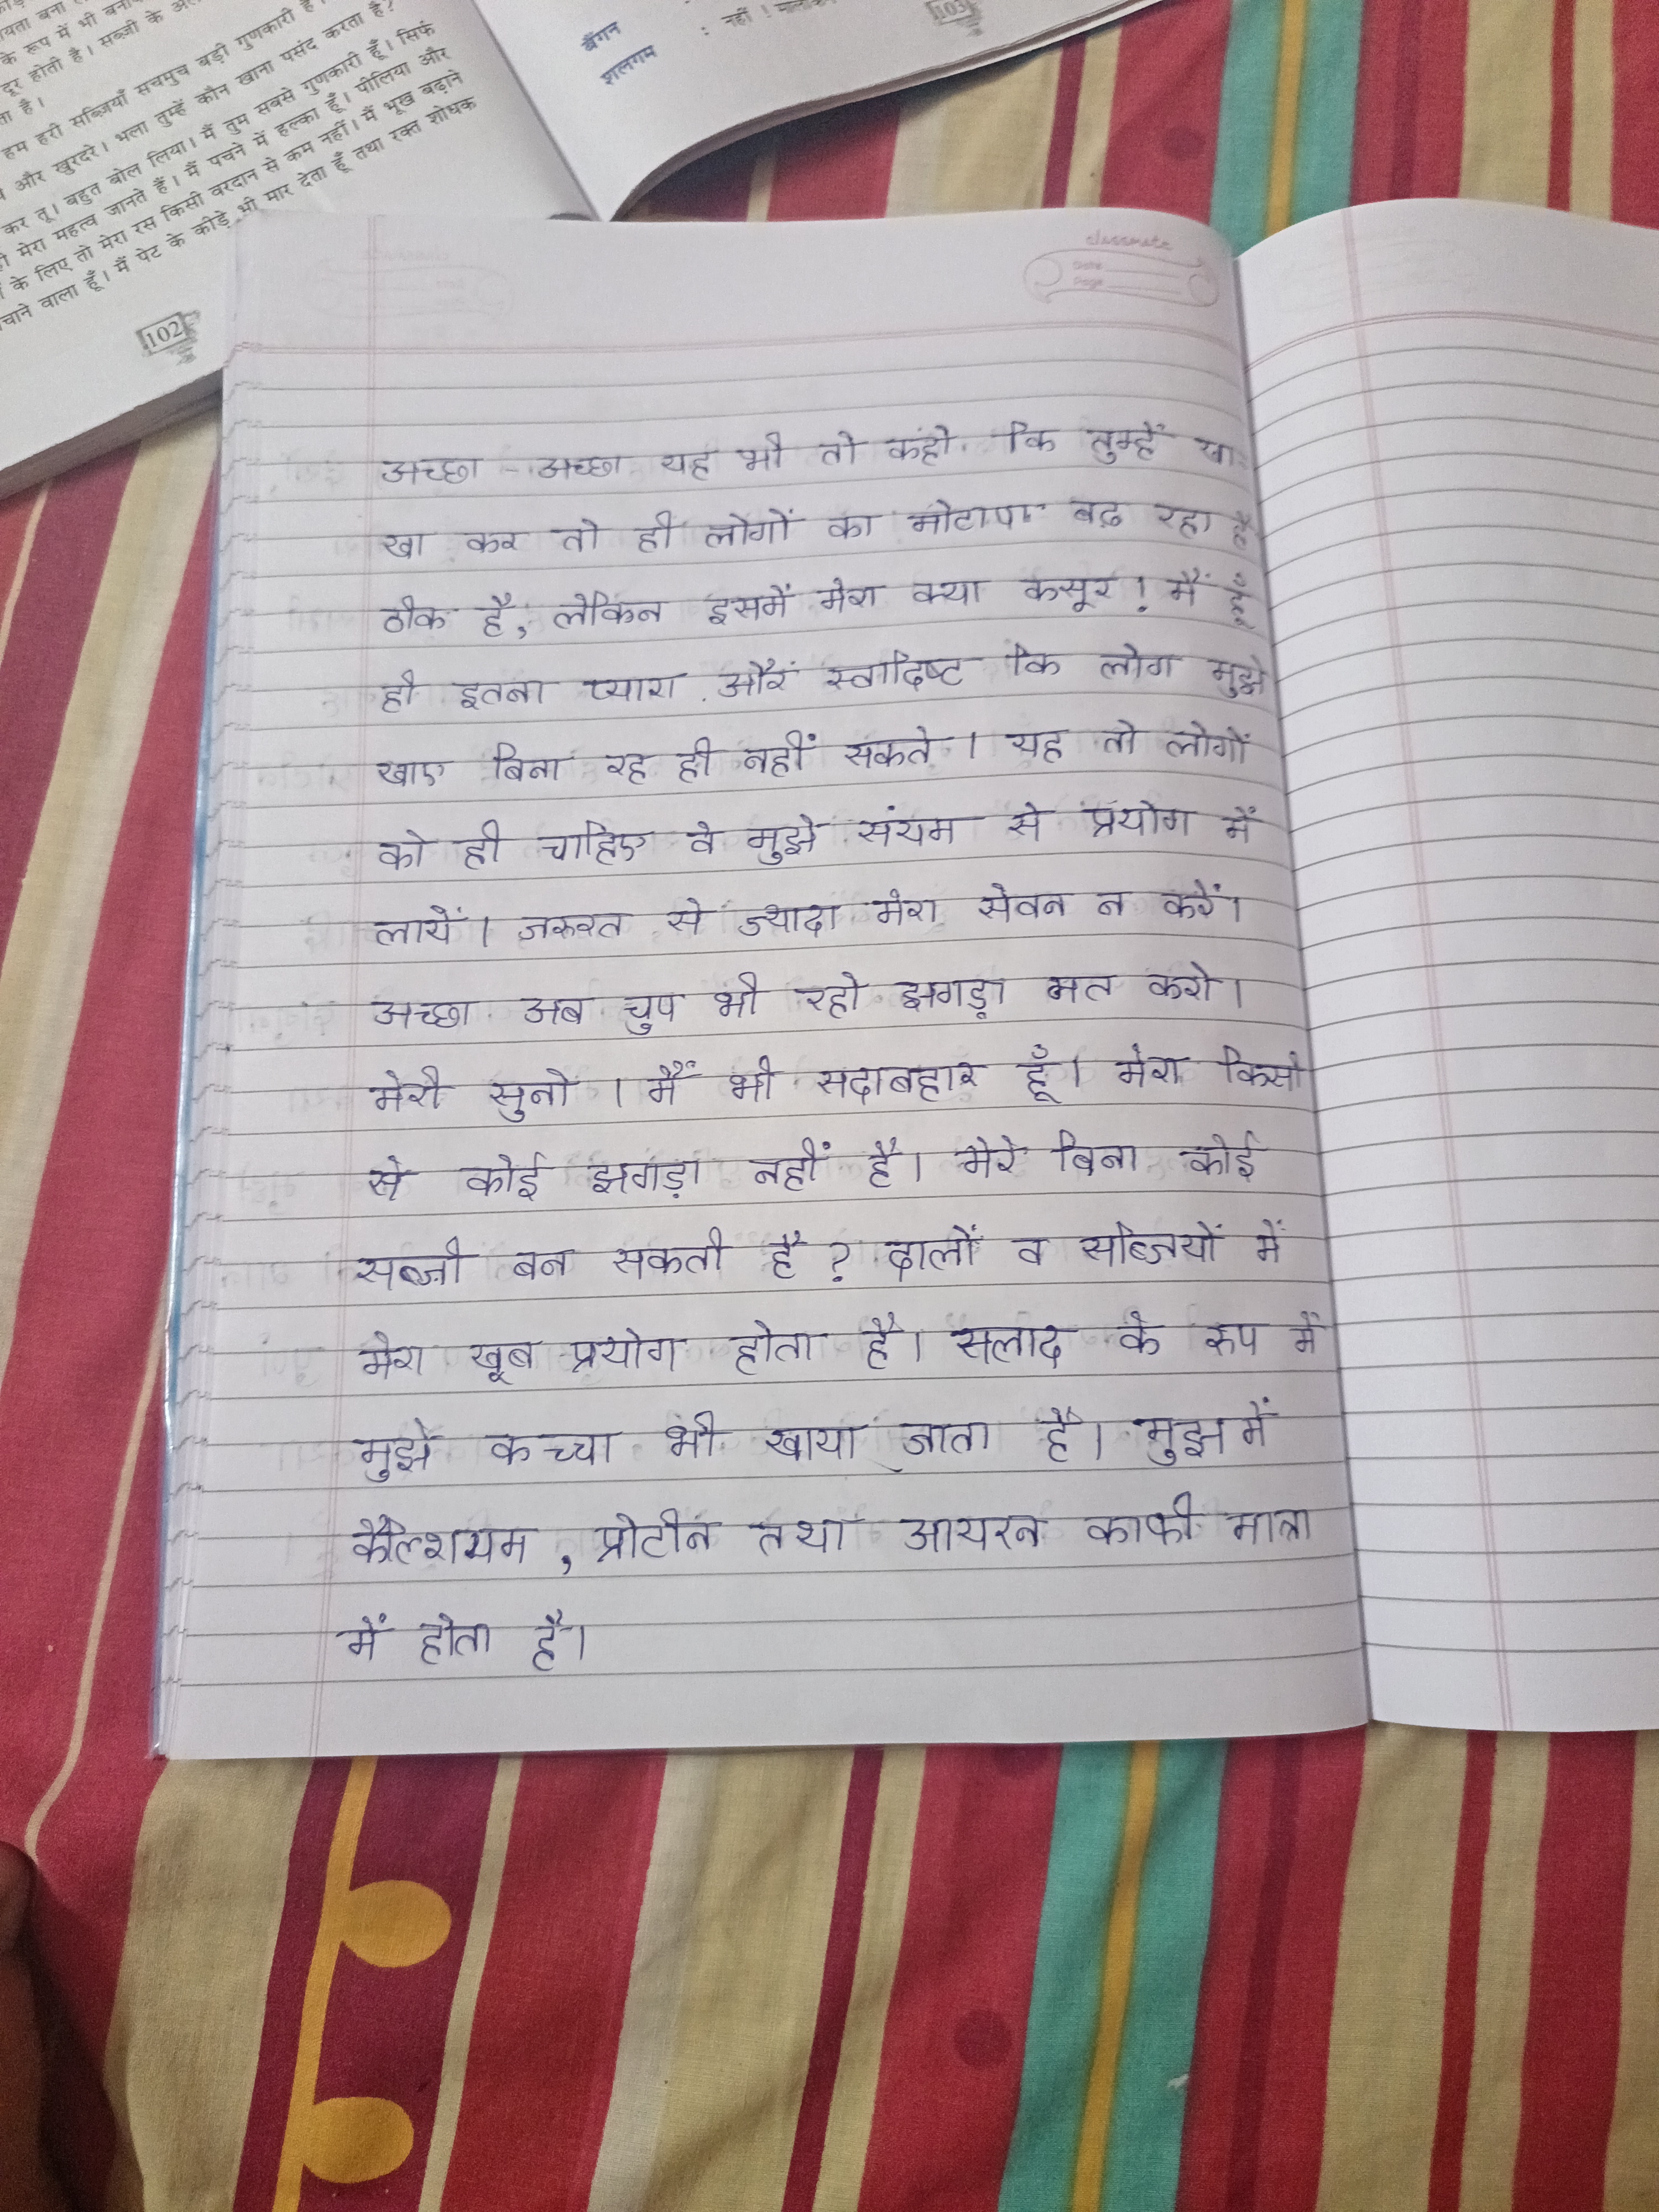 हम हरी सब्ज़ियाँ सचमुच बड़ी गुणकारी हैं।
और खुरदरे। भला तुम्हें कौन खाना पसंद करता है?
कर तू। बहुत बोल लिया। मैं तुम सबसे गुणकारी हूँ। सिर्फ
मेरा महत्व जानते हैं। मैं पचने में हल्का हूँ। पीलिया और
के लिए तो मेरा रस किसी वरदान से कम नहीं। मैं भूख बढ़ाने
वाला हूँ। मैं पेट के कीड़े भी मार देता हूँ तथा रक्त शोधक
102
बैंगन
शलगम : नहीं !
103
classmate
Date
Page
अच्छा - अच्छा यह भी तो कहो कि तुम्हें खा
खा कर तो ही लोगों का मोटापा बढ़ रहा है
ठीक है, लेकिन इसमें मेरा क्या कसूर! मैं हूँ
ही इतना प्यारा और स्वादिष्ट कि लोग मुझे
खाए बिना रह ही नहीं सकते। यह तो लोगों
को ही चाहिए वे मुझे संयम से प्रयोग में
लायें। जरूरत से ज्यादा मेरा सेवन न करें।
अच्छा अब चुप भी रहो झगड़ा मत करो।
मेरी सुनो। मैं भी सदाबहार हूँ। मेरा किसी
से कोई झगड़ा नहीं है। मेरे बिना कोई
सब्जी बन सकती है? दालों व सब्जियों में
मेरा खूब प्रयोग होता है। सलाद के रूप में
मुझे कच्चा भी खाया जाता है। मुझ में
कैल्शियम, प्रोटीन तथा आयरन काफी मात्रा
में होता है।